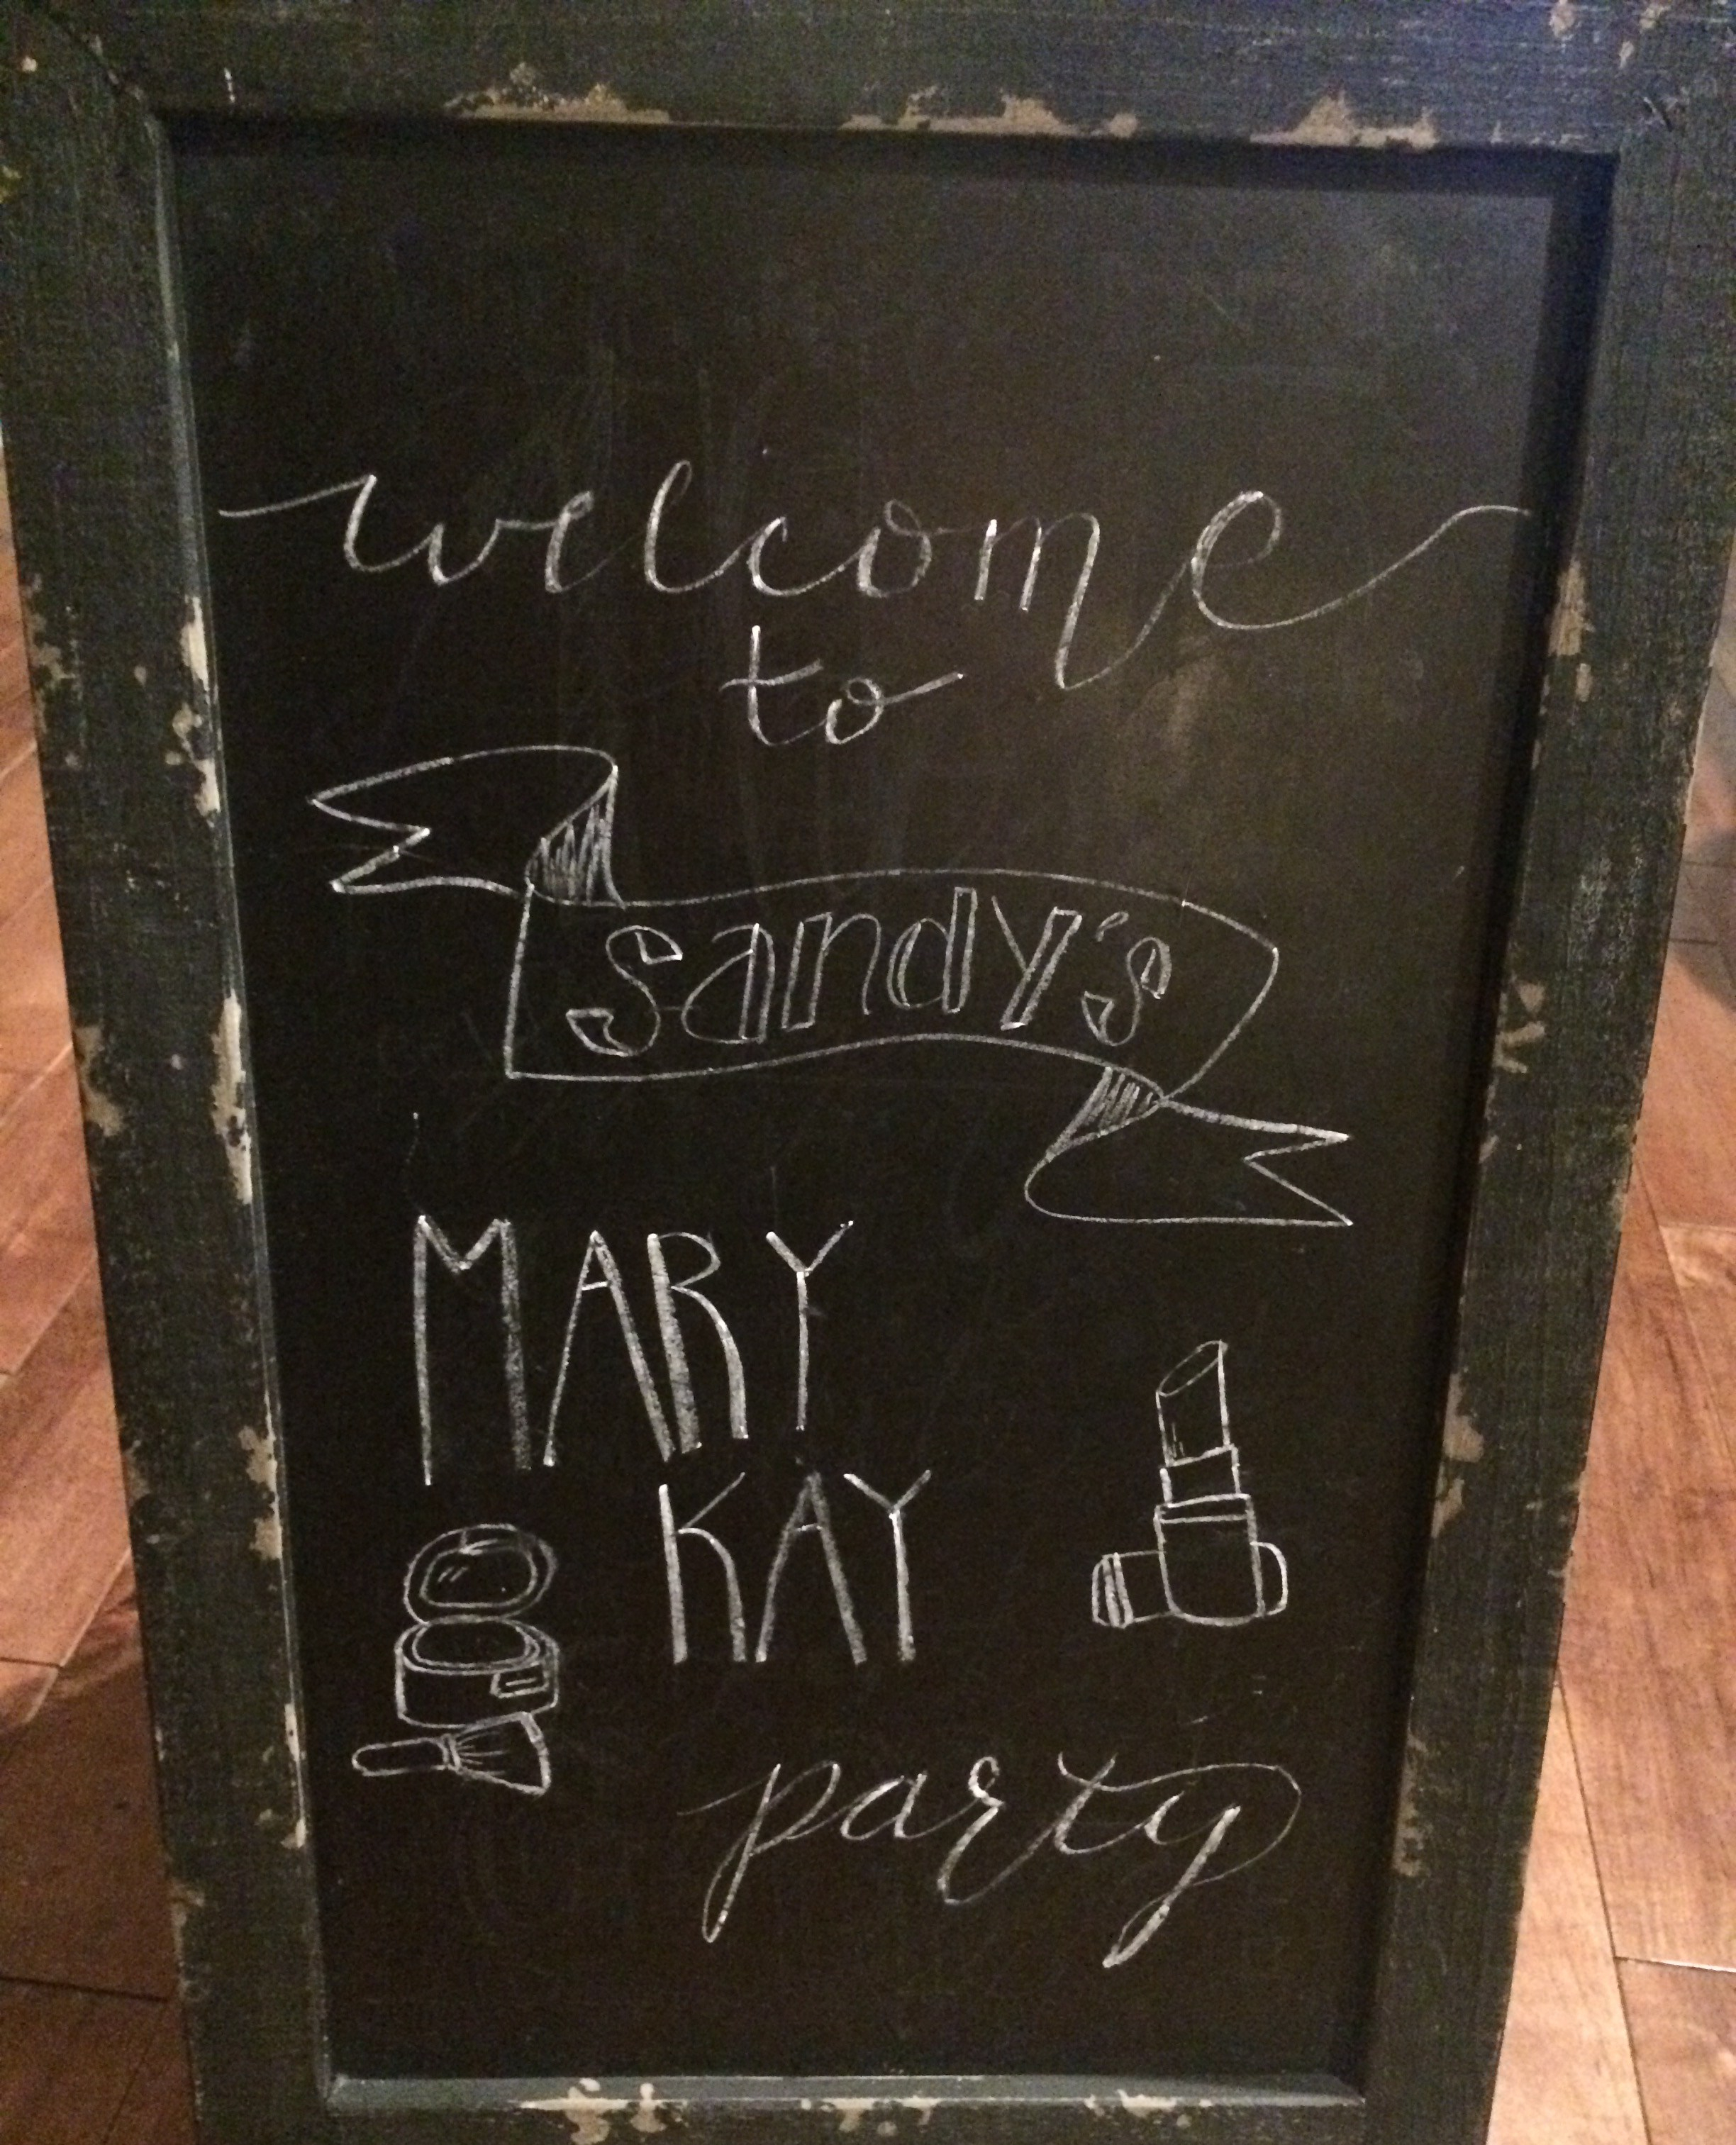 welcome
to
sandy's
MARY
KAY
party